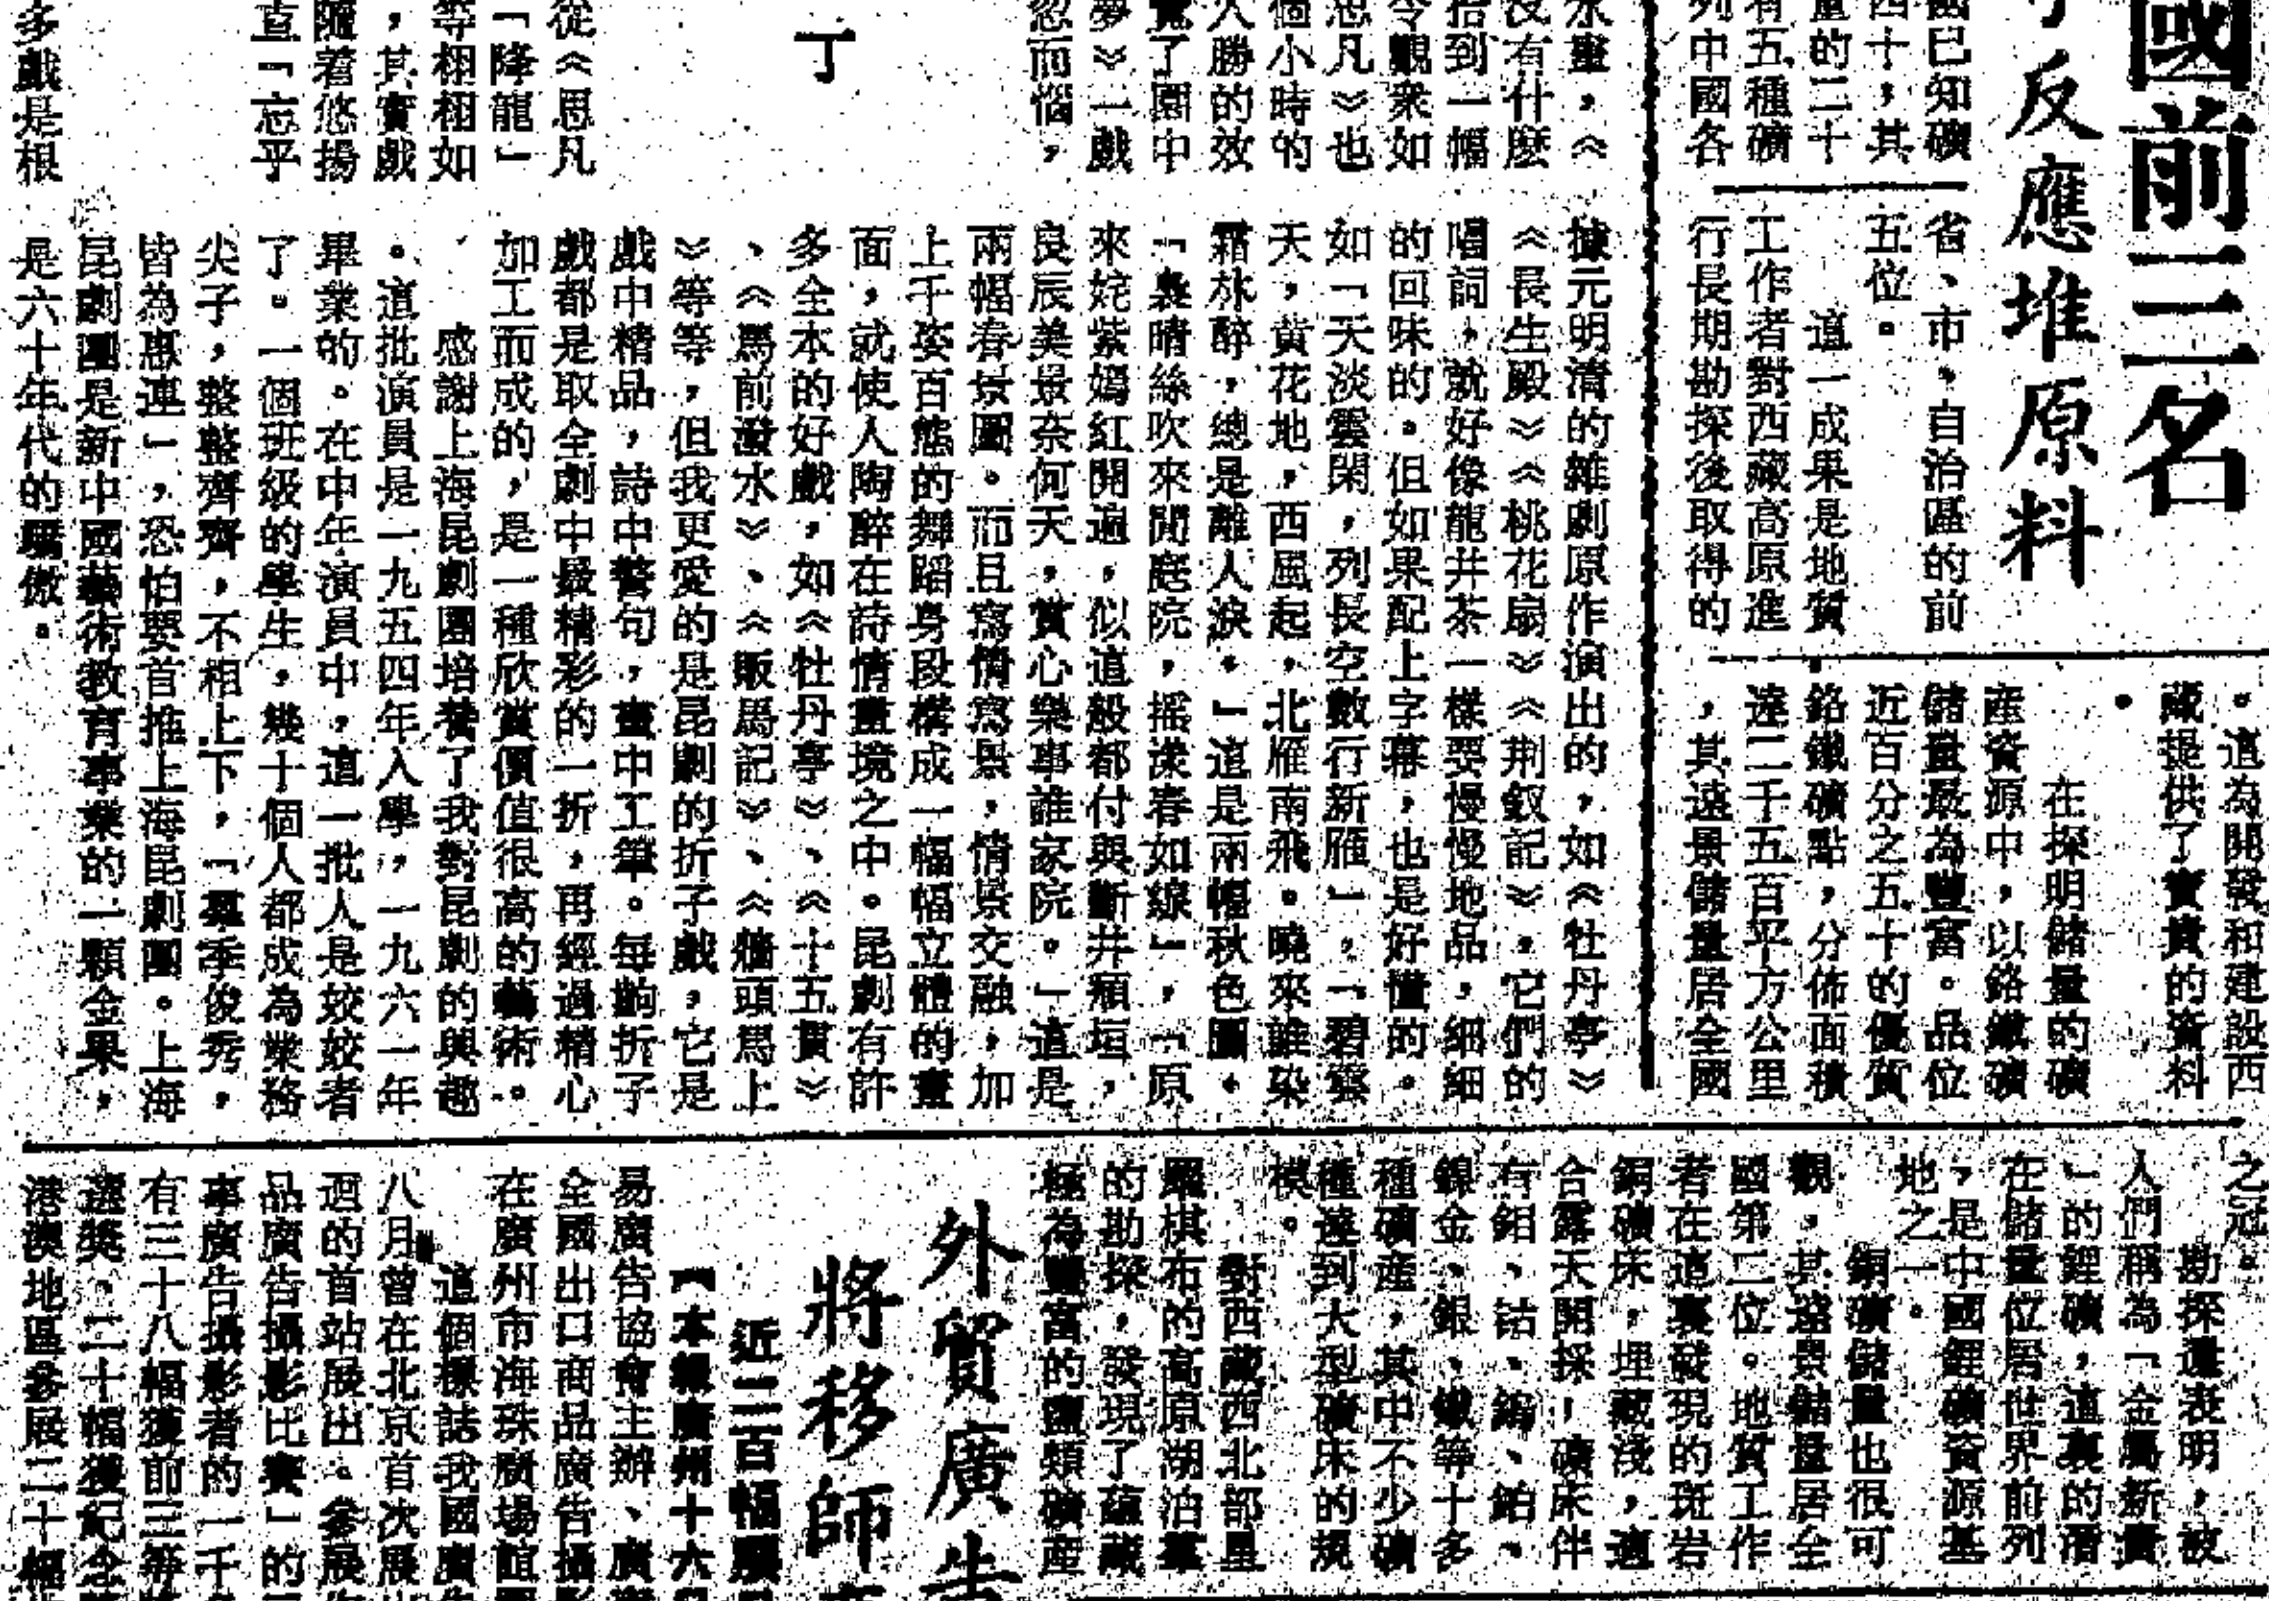 國前三名
反應堆原料
國已知礦
四十，其
量的二十
有五種礦
列中國各
省、市，自治區的前
五位。
這一成果是地質
工作者對西藏高原進
行長期勘探後取得的
。這為開發和建設西
藏提供了寶貴的資料
。
在探明儲量的礦
産資源中，以鉻鐵礦
儲量最為豐富。品位
近百分之五十的優質
鉻鐵礦點，分佈面積
達二千五百平方公里
，其遠景儲量居全國
之冠。
勘探還表明，被
人們稱為「金屬新貴
」的鋰礦，這裏的潛
在儲量位居世界前列
，是中國鋰礦資源基
地之一。
銅礦儲量也很可
觀，其遠景儲量居全
國第二位。地質工作
者在這裏發現的斑岩
銅礦床，埋藏淺，適
合露天開採，礦床伴
有鉬、鈷、鎢、鉑、
鎳金、銀、鐵等十多
種礦産，其中不少礦
種達到大型礦床的規
模。
對西藏西北部星
羅棋布的高原湖泊羣
的勘探，發現了蘊藏
極為豐富的鹽類礦産
水畫，《
沒有什麽
拾到一幅
令觀衆如
思凡》也
個小時的
人勝的效
覽了園中
夢》一戲
忽而惱，
丁
從《思凡
「降龍」
等栩栩如
，其實戲
隨着悠揚
直「忘乎
多戲是根
據元明清的雜劇原作演出的，如《牡丹亭》
《長生殿》《桃花扇》《荆釵記》，它們的
唱詞，就好像龍井茶一樣要慢慢地品，細細
的回味的。但如果配上字幕，也是好懂的。
如「天淡雲閑，列長空數行新雁」，「碧雲
天，黄花地，西風起，北雁南飛。曉來誰染
霜林醉，總是離人淚。」這是兩幅秋色圖。
「裊晴絲吹來閒庭院，摇漾春如線」，「原
來姹紫嫣紅開遍，似這般都付與斷井頹垣，
良辰美景奈何天，賞心樂事誰家院。」這是
兩幅春景圖。而且寫情寫景，情景交融，加
上千姿百態的舞蹈身段構成一幅幅立體的畫
面，就使人陶醉在詩情畫境之中。昆劇有許
多全本的好戲，如《牡丹亭》、《十五貫》
、《馬前潑水》、《販馬記》、《牆頭馬上
》等等，但我更愛的是昆劇的折子戲，它是
戲中精品，詩中警句，畫中工筆。每齣折子
戲都是取全劇中最精彩的一折，再經過精心
加工而成的，是一種欣賞價值很高的藝術。
感謝上海昆劇團培養了我對昆劇的興趣
。這批演員是一九五四年入學，一九六一年
畢業的。在中年演員中，這一批人是姣姣者
了。一個班級的學生，幾十個人都成為業務
尖子，整整齊齊，不相上下，「羣季俊秀，
皆為惠連」，恐怕要首推上海昆劇團。上海
昆劇團是新中國藝術教育事業的一顆金果，
是六十年代的驕傲。
外貿廣告
將移師
近二百幅展
【本報廣州十六日
易廣告協會主辦、廣
全國出口商品廣告攝影
在廣州市海珠廣場館
這個標誌我國廣告
八月曾在北京首次展出
迴的首站展出。參展作
品廣告攝影比賽」的
事廣告攝影者的一千
有三十八幅獲前三等
選獎，二十幅獲紀念
港澳地區參展二十幅